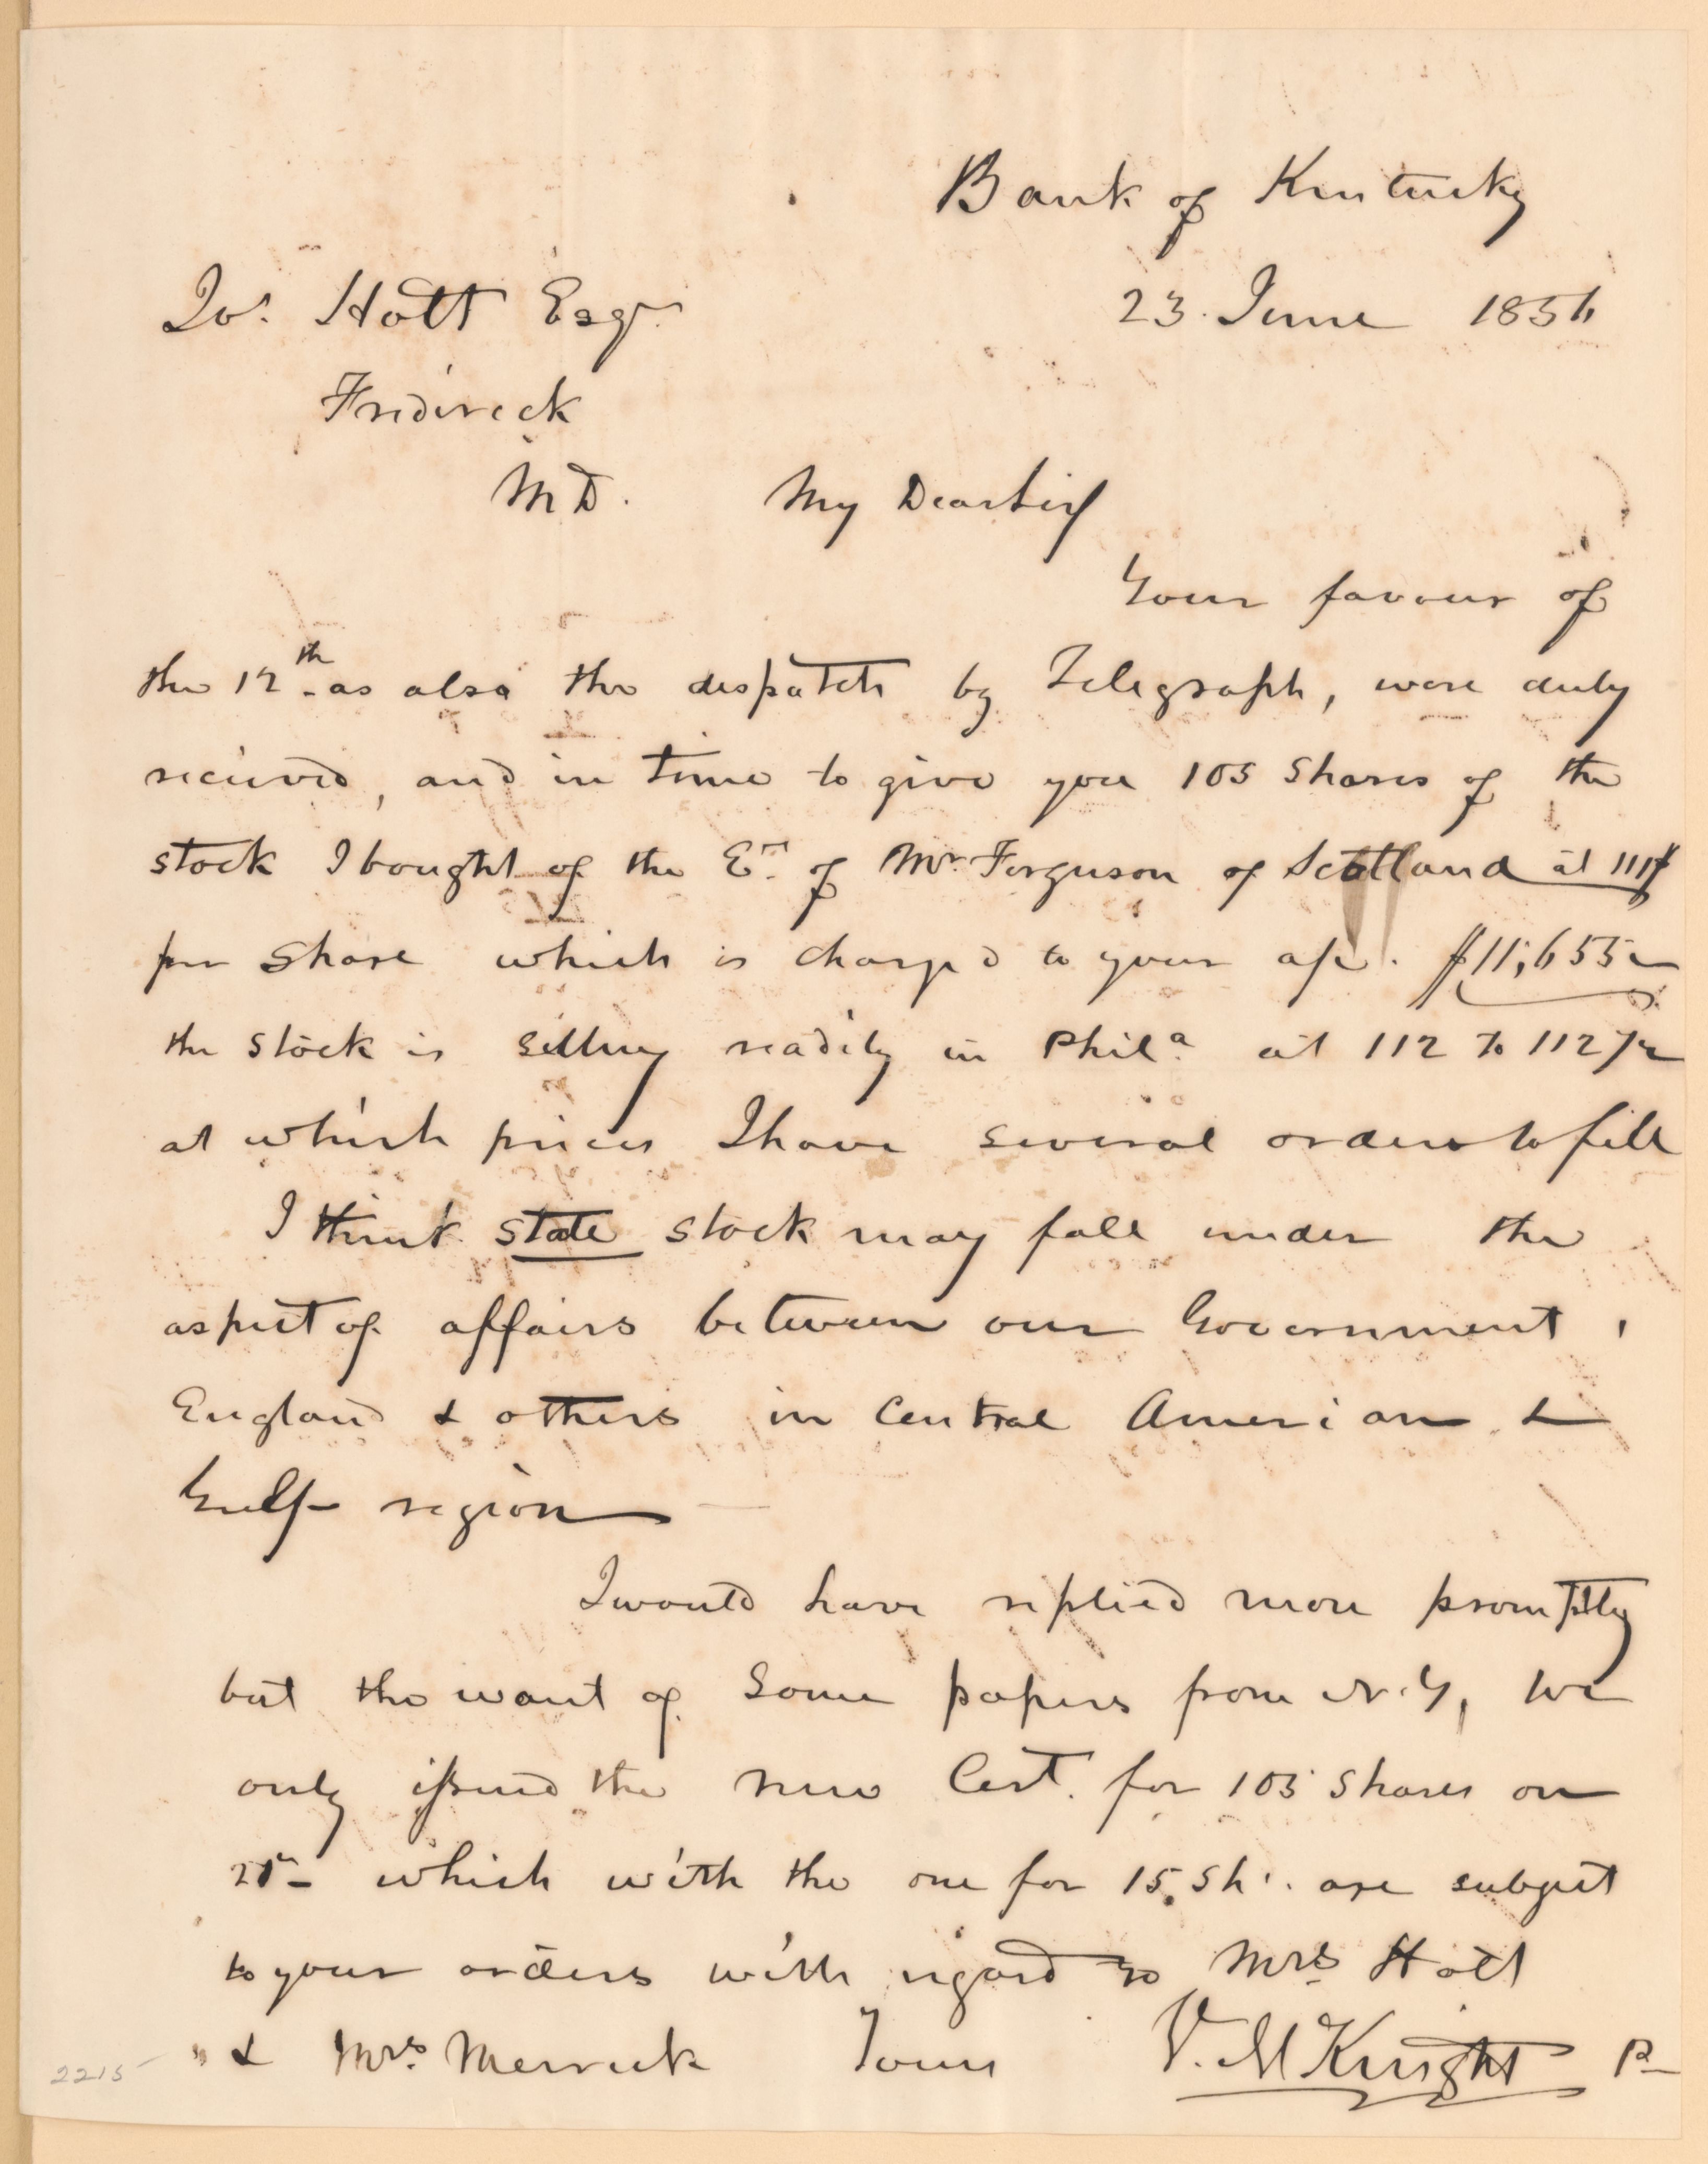 Bank of Kentucky
23. June 1856
Jos. Holt Esqr.
Frederick
MD. My Dear Sir
Your favour of
the 12th as also the despatch by Telegraph, were duly
recieved, and in time to give you 105 shares of the
stock I bought of the Er. of Mr. Ferguson of Scotland at 111$
per share which is charged to your a/c. $11,655
the stock is selling readily in Phila. at 112 to 112 1/2
at which prices I have several orders to fill
I think state stock may fall under the
aspect of affairs between our Government,
England & others in Central American &
Gulf region
I would have replied more promptly
but the want of some papers from N.Y, we
only issued the new Cert. for 105 shares on
21st which with the one for 15 Sh. are subject
to your orders with regard to Mrs. Holt
& Mrs. Merrick Yours V. McKnight P
2215